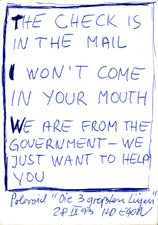 THE CHECK IS
IN THE MAIL
I WON'T COME
IN YOUR MOUTH
WE ARE FROM THE
GOVERNMENT – WE
JUST WANT TO HELP
YOU
Polaroid "Die 3 größten Lügen"
28.IX.93 HD EGON